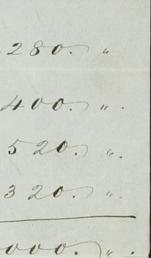 280. "
400. ".
520. ".
320. ".
000. ".